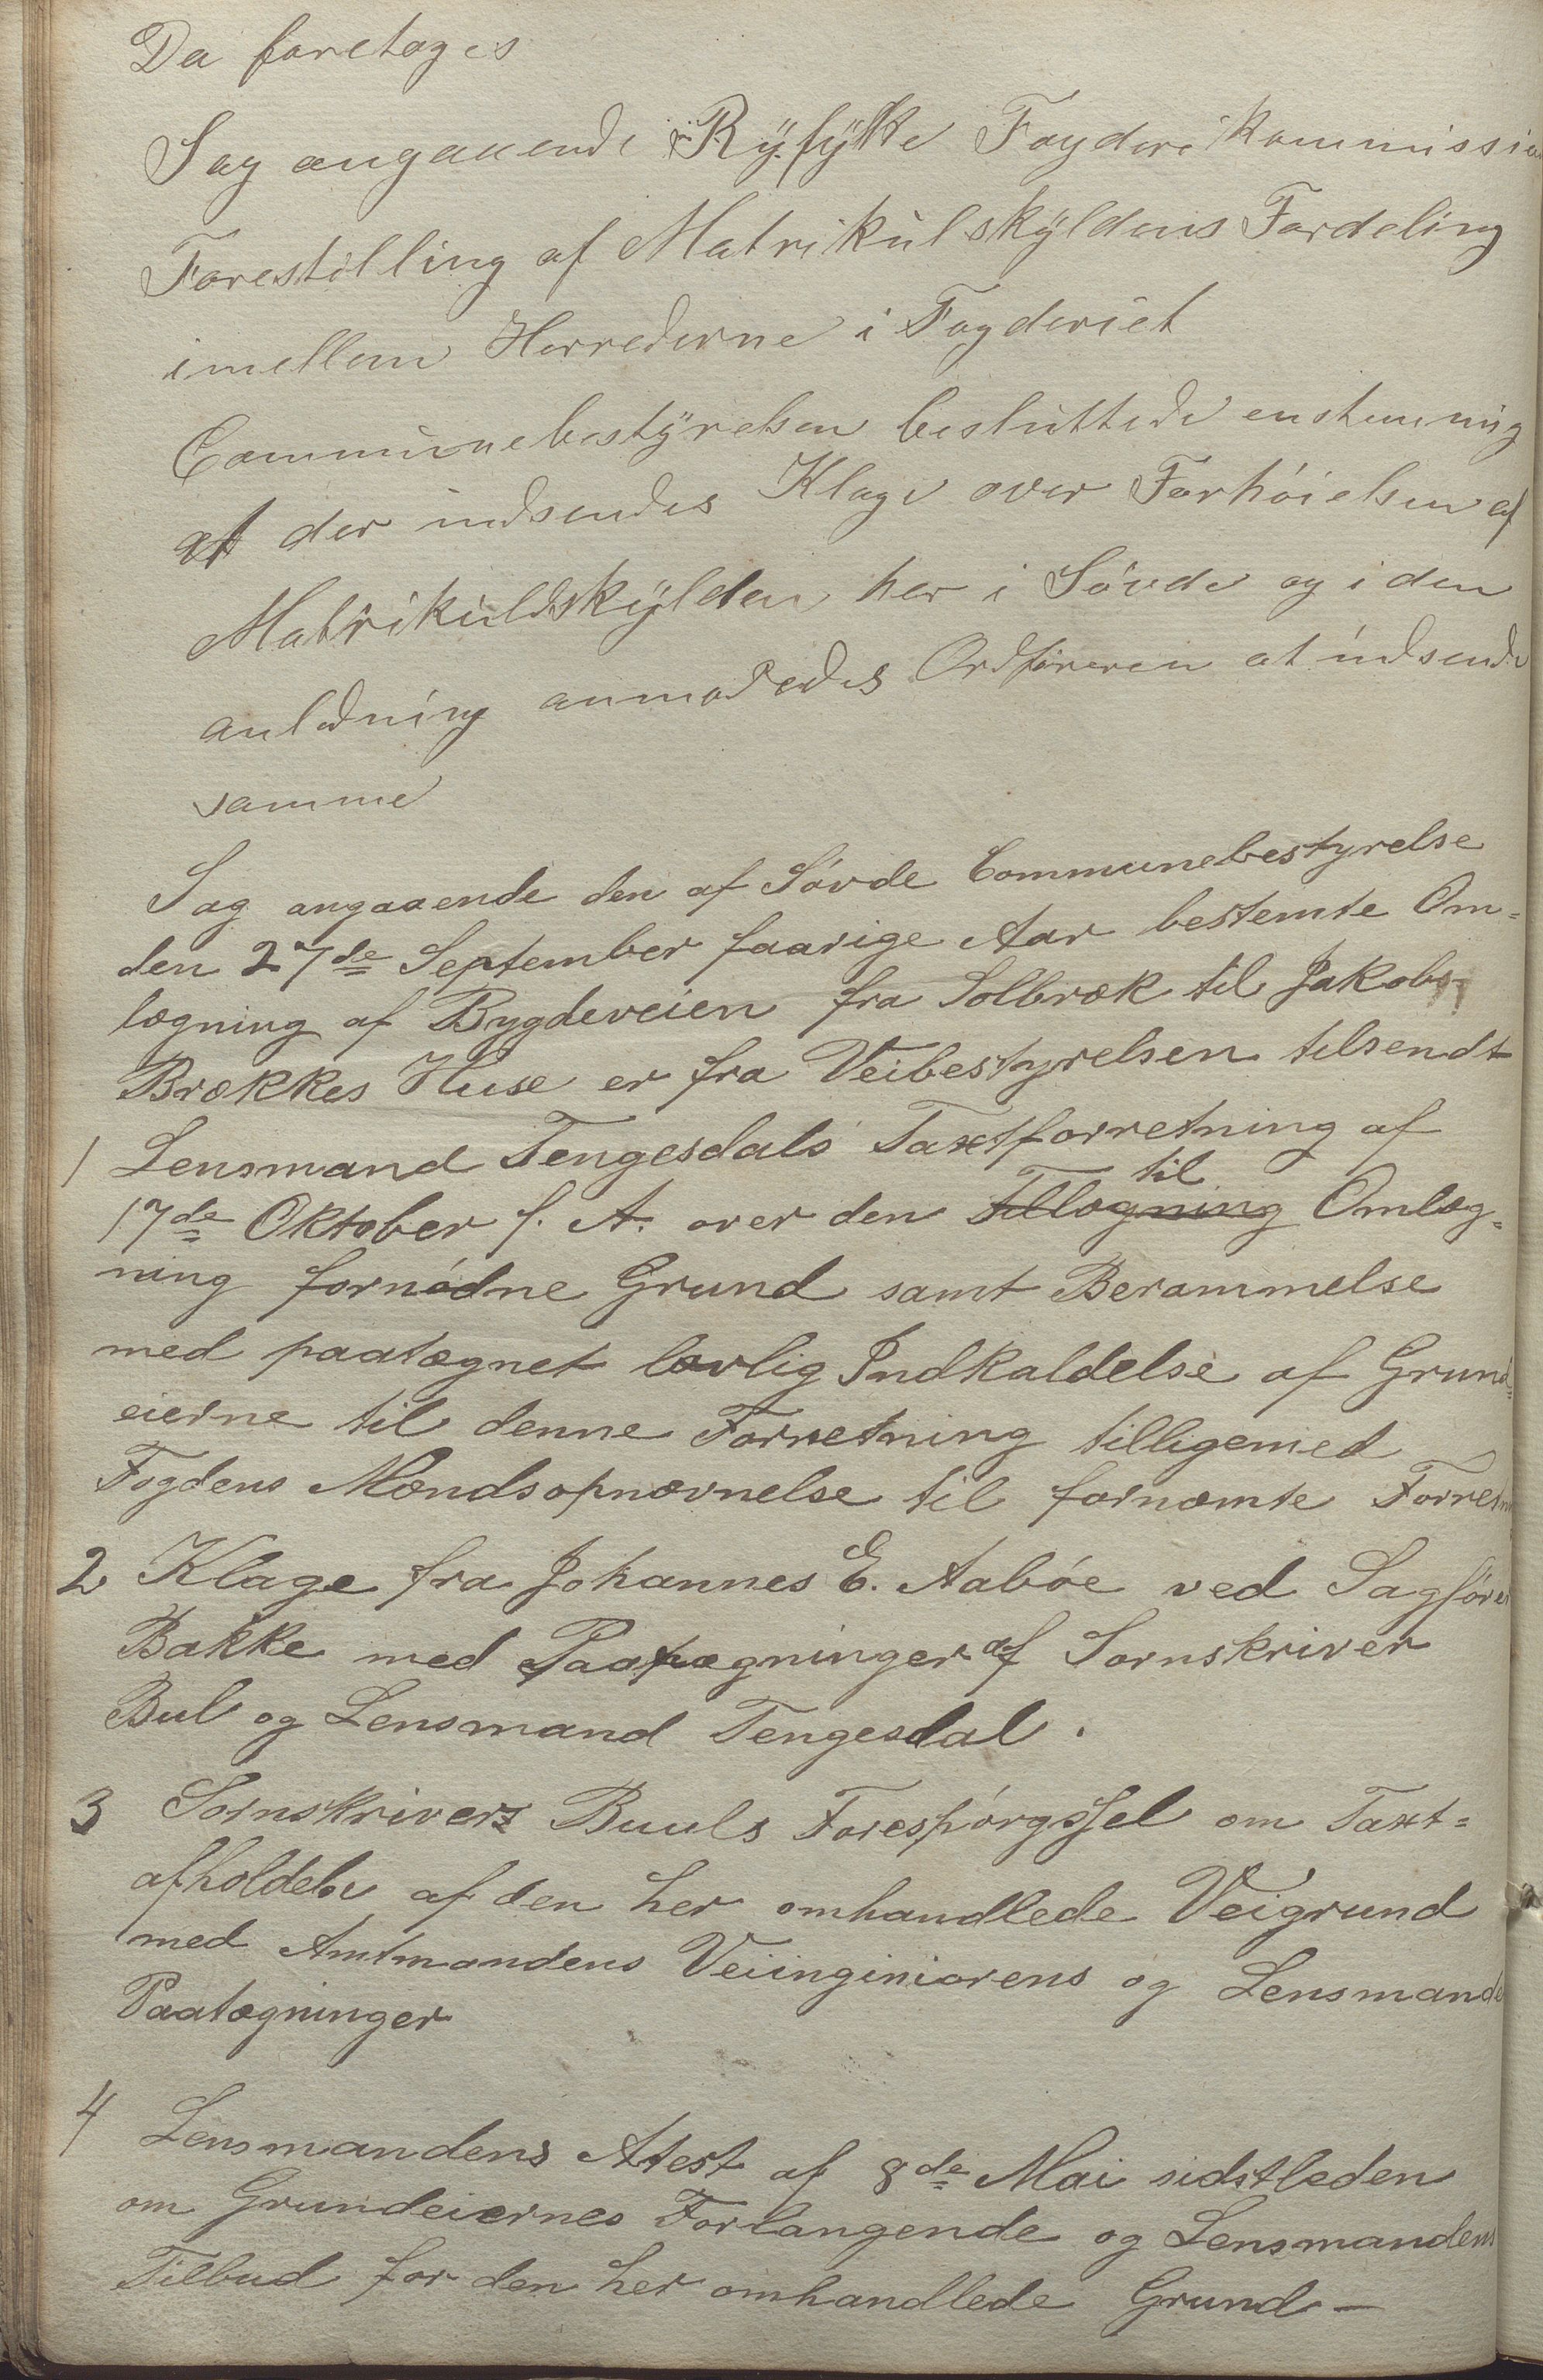 Da foretoges
Sag angaaende Ryfylke Fogderikommission
Forestilling af Matrikulskyldens Fordeling
imellem Herrederne i Fogderiet
Communebestyrelsen besluttede enstemmig
at der indsendes Klage over Forhöielsen af
Matrikuldskylden her i Sövde og i den
anledning anmodedes Ordföreren at indsende
samme
Sag angaaende den af Sövde Communebestyrelse
den 27de September faarige Aar bestemte Om=
lægning af Bygdeveien fra Solbræk til Jakobs
Brækkes Huse er fra Veibestyrelsen tilsendt
1 Lensmand Tengesdals Taxtforretning af
17de Oktober f. A. over den Tillægning til Omlæg=
ning fornödne Grund samt Berammelse
med paategnet lovlig Indkaldelse af Grund=
eierne til denne Forretning tilligemed
Fogdens Mændsopnævnelse til fornæmte Forretn
2 Klage fra Johannes E. Aaböe ved Sagförer
Bakke med Paatægninger af Sornskriver
Bul og Lensmand Tengesdal.
3 Sornskriver Buuls Forespörgssel om Taxt=
afholdelse af den her omhandlede Veigrund
med Amtmandens Veiinginiørens og Lensmande
Paatægninger
4 Lensmandens Atest af 8de Mai sidstleden
om Grundeiernes Forlangende og Lensmandens
Tilbud for den her omhandlede Grund –